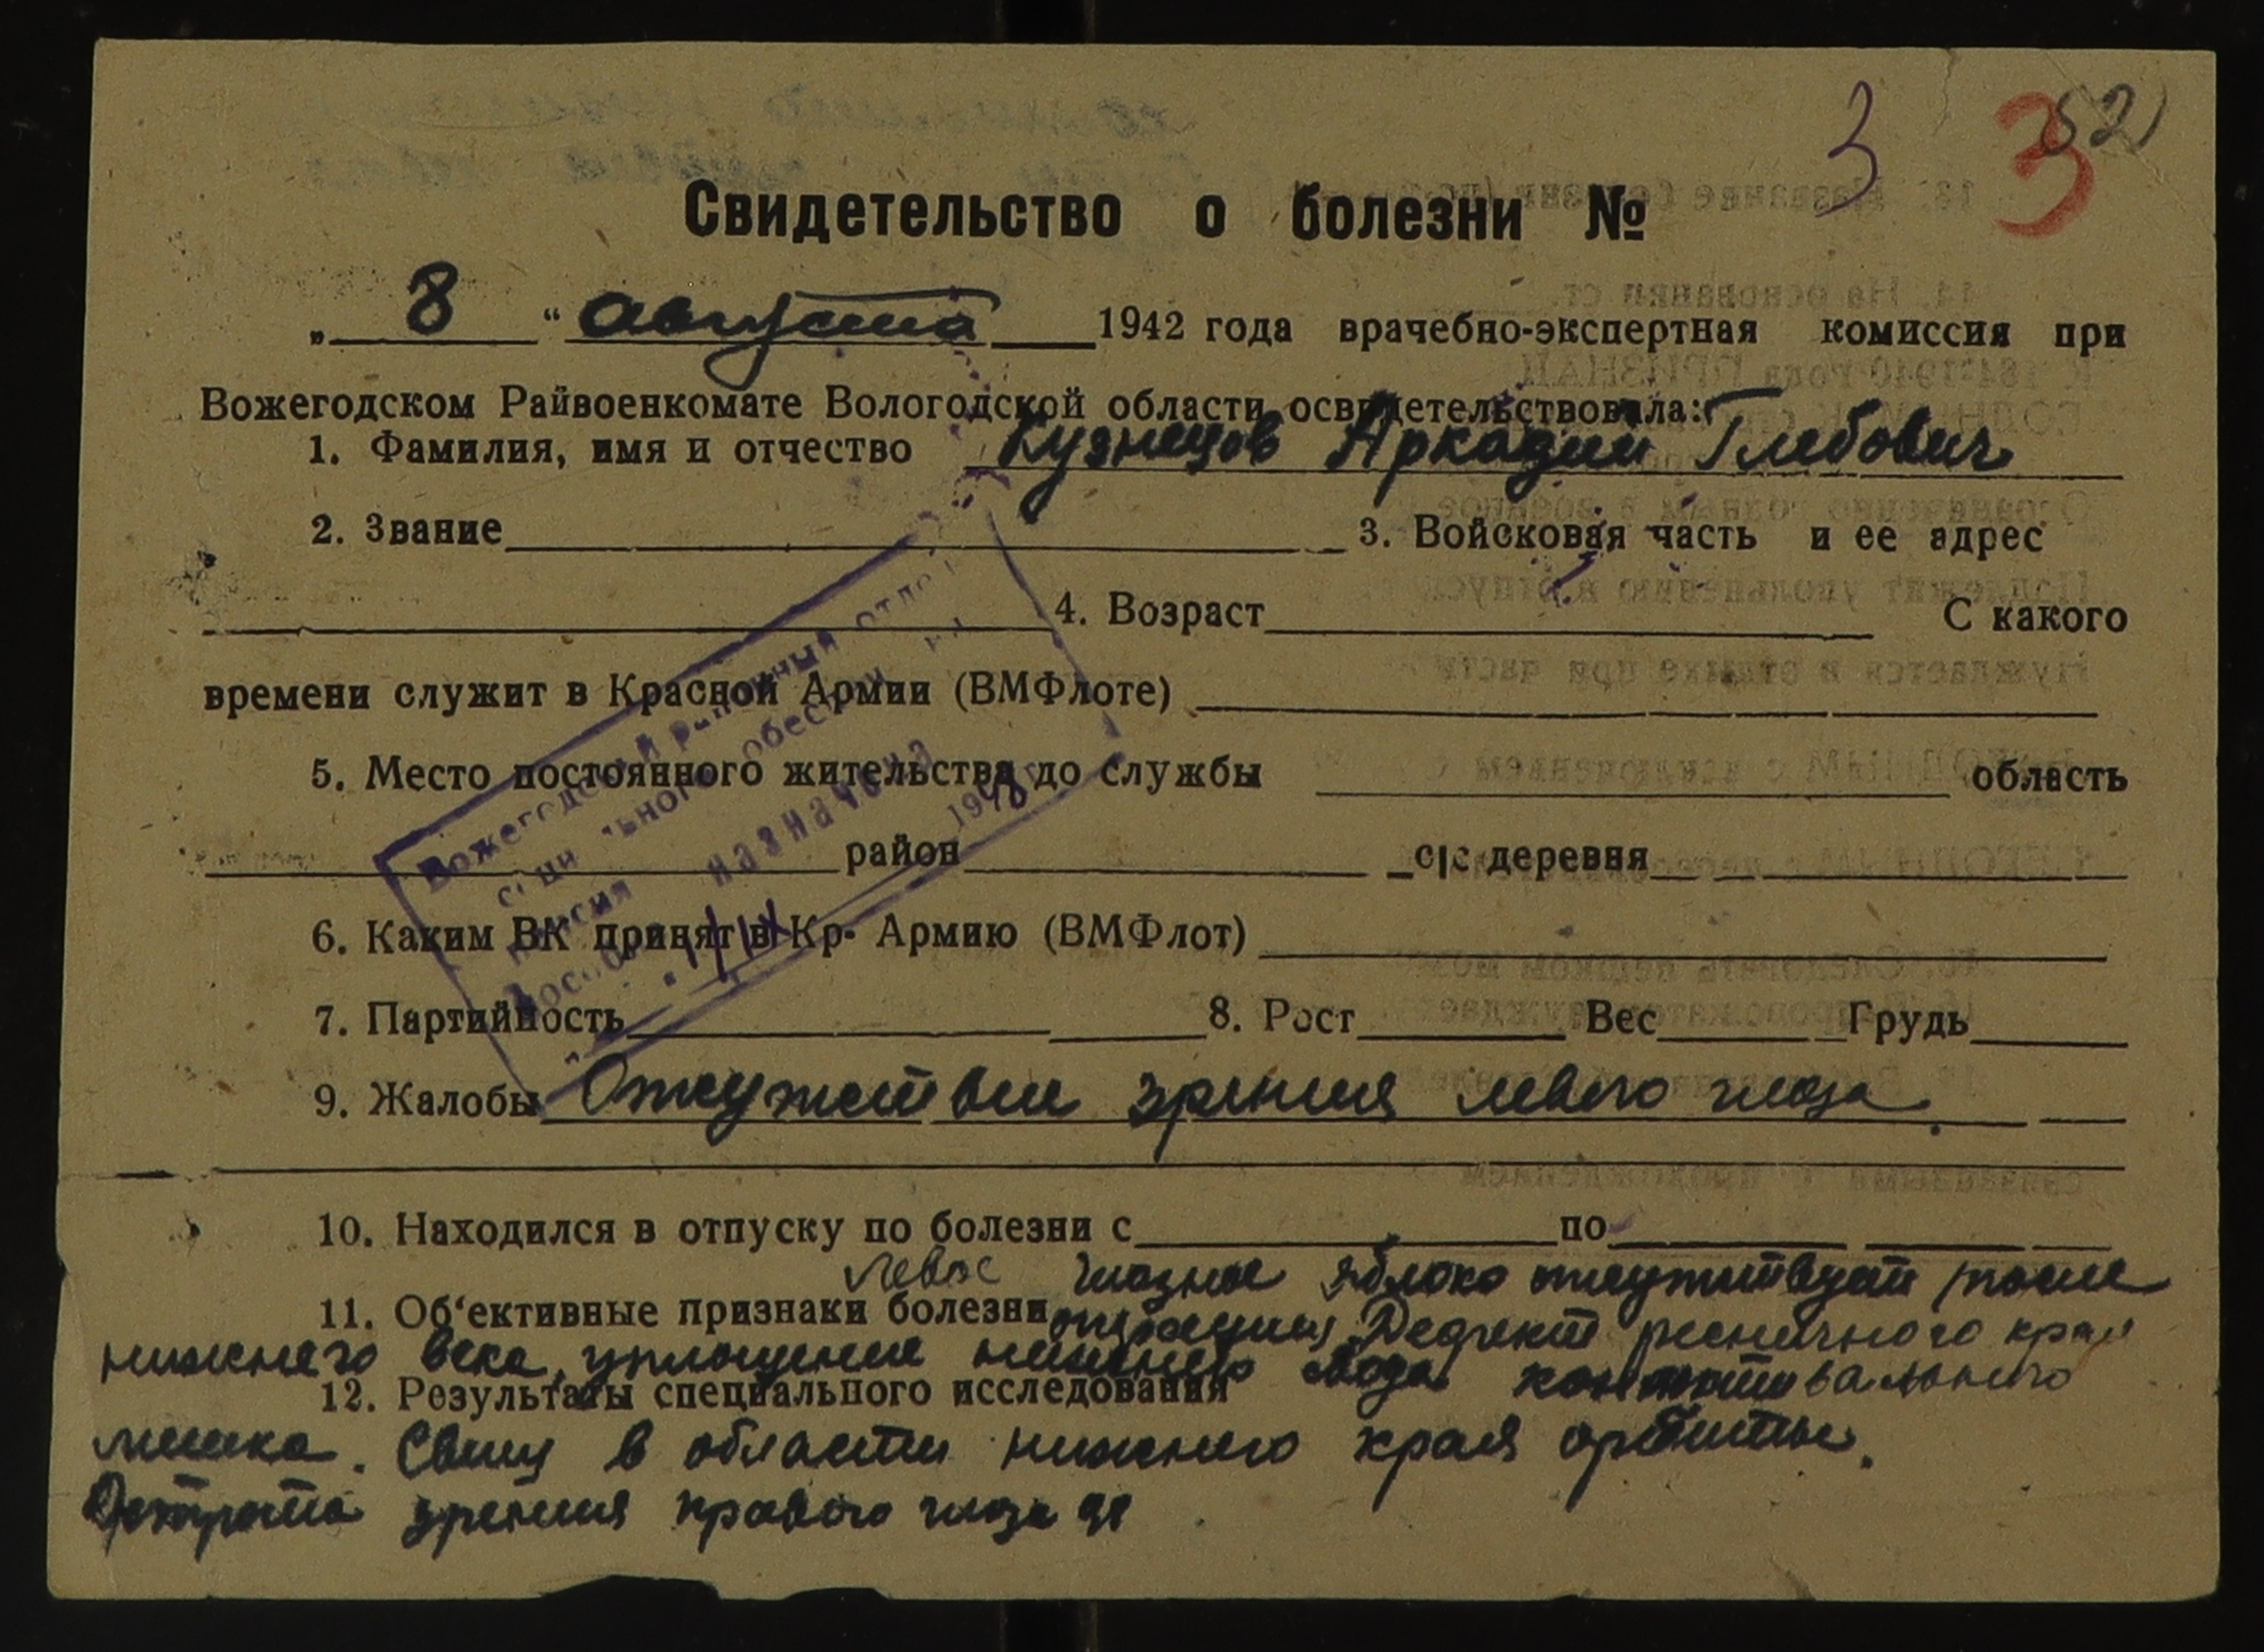 3 3 52)
Свидетельство о болезни №
„ 8 “ августа 1942 года врачебно-экспертная комиссия при
Вожегодском Райвоенкомате Вологодской области освидетельствовала:
1. Фамилия, имя и отчество Кузнецов Аркадий Глебович
2. Звание 3. Войсковая часть и ее адрес
4. Возраст С какого
времени служит в Красной Армии (ВМФлоте)
5. Место постоянного жительства до службы область
район с|с деревня
6. Каким ВК принят в Кр. Армию (ВМФлот)
7. Партийность 8. Рост Вес Грудь
9. Жалобы Отсутствие зрения левого глаза.
10. Находился в отпуску по болезни с по
Левое глазное яблоко отсутствует после
11. Об‘ективные признаки болезни операции. Дефект ресничного края
нижнего века, уплощение нижнего свода конъюктивального
12. Результаты специального исследования
мешка. Свищ в области нижнего края орбиты.
Острота зрения правого глаза
Вожегодский районный отдел
социального обеспечения
пенсия назначена
пособие 1/IX 1948 г.